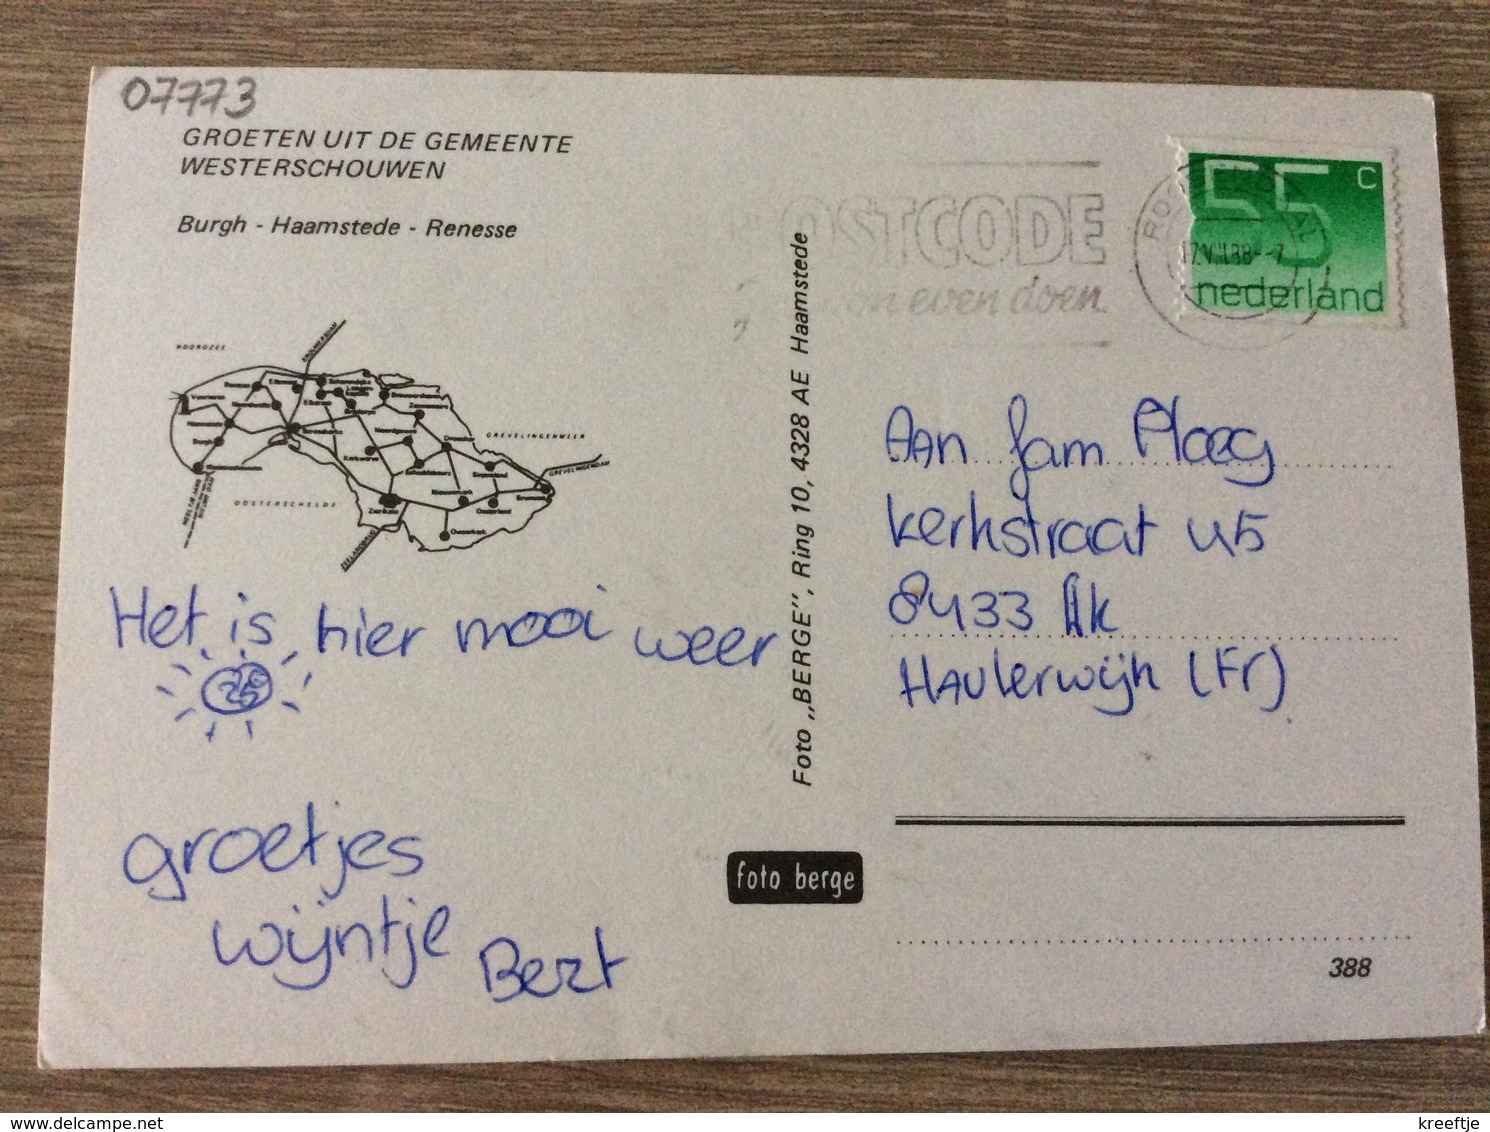 07773
GROETEN UIT DE GEMEENTE
WESTERSCHOUWEN
Burgh - Haamstede - Renesse
NOORDZEE
GREVELINGENMEER
GREVELINGENDAM
OOSTERSCHELDE
Zierikzee
Het is hier mooi weer
25°
groetjes
wijntje Bert
Foto „BERGE”, Ring 10, 4328 AE Haamstede
foto berge
OSTCODE
even doen
55 c
nederland
Aan fam Ploeg
Kerkstraat 45
8433 Ak
Haulerwijk (Fr)
388
Te koop op delcampe.net
kreeftje